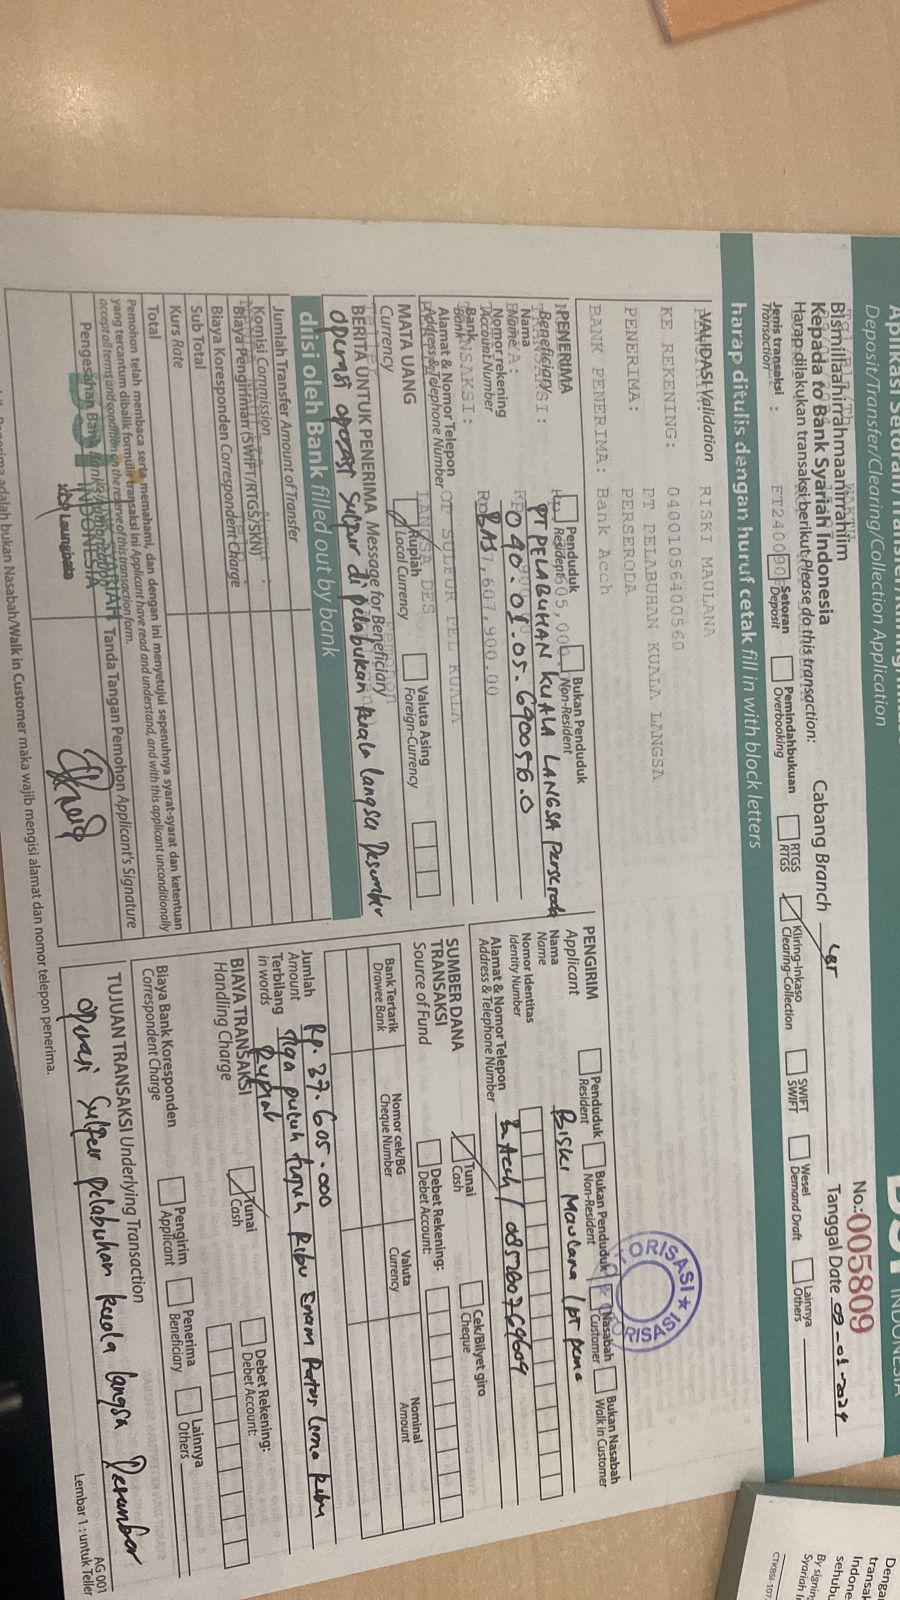 Aplikasi Setoran/Transfer/Kliring/Inkaso
Deposit/Transfer/Clearing/Collection Application
BSI INDONESIA
No.:005809
Bismillaahirrahmaanirrahiim
Kepada to Bank Syariah Indonesia
Cabang Branch
Tanggal Date 09-01-2024
Harap dilakukan transaksi berikut Please do this transaction:
Jenis transaksi :
Transaction
Setoran
Deposit
Pemindahbukuan
Overbooking
RTGS
RTGS
Kliring-Inkaso
Clearing-Collection
SWIFT
SWIFT
Wesel
Demand Draft
Lainnya
Others
harap ditulis dengan huruf cetak fill in with block letters
VALIDASI Validation
RISKI MAULANA
KE REKENING: 04001056400560
PT PELABUHAN KUALA LANGSA
PENERIMA: PERSERODA
BANK PENERIMA: Bank Aceh
ORISASI ★ ORISASI
PENERIMA
Beneficiary
Penduduk
Resident
Bukan Penduduk
Non-Resident
Nama
Name
PT PELABUHAN KUALA LANGSA Perseroda
Nomor rekening
Account Number
040.01.05.690056.0
Bank
Bank
BAS
Alamat & Nomor Telepon
Address & Telephone Number
MATA UANG
Currency
Rupiah
Local Currency
Valuta Asing
Foreign-Currency
BERITA UNTUK PENERIMA Message for Beneficiary
operasi operasi Sulpur di pelabukan kuala langsa Desember
diisi oleh Bank filled out by bank
Jumlah Transfer Amount of Transfer
Komisi Commission
Biaya Pengiriman (SWIFT/RTGS/SKN)
Biaya Koresponden Correspondent Charge
Sub Total
Kurs Rate
Total
Pemohon telah membaca serta memahami, dan dengan ini menyetujui sepenuhnya syarat-syarat dan ketentuan
yang tercantum dibalik formulir transaksi ini Applicant have read and understand, and with this applicant unconditionally
accept all terms and condition on the reserve of this transaction form.
Pengesahan Bank
Tanda Tangan Pemohon Applicant's Signature
PENGIRIM
Applicant
Penduduk
Resident
Bukan Penduduk
Non-Resident
Nasabah
Customer
Bukan Nasabah
Walk in Customer
Nama
Name
Riski Maulana / pt pema
Nomor Identitas
Identity Number
Alamat & Nomor Telepon
Address & Telephone Number
B. Aceh / 085260769609
SUMBER DANA
TRANSAKSI
Source of Fund
Tunai
Cash
Cek/Bilyet giro
Cheque
Debet Rekening:
Debet Account:
Bank Tertarik
Drawee Bank
Nomor cek/BG
Cheque Number
Valuta
Currency
Nominal
Amount
Jumlah
Amount
Rp. 37.605.000
Terbilang
in words
Tiga puluh tujuh Ribu Enam Ratus Lima Ribu
Rupiah
BIAYA TRANSAKSI
Handling Charge
Tunai
Cash
Debet Rekening:
Debet Account:
Biaya Bank Koresponden
Correspondent Charge
Pengirim
Applicant
Penerima
Beneficiary
Lainnya
Others
TUJUAN TRANSAKSI Underlying Transaction
operasi Sulper pelabuhan kuala langsa Desember
AG 001
Lembar 1 : untuk Teller
adalah bukan Nasabah/Walk in Customer maka wajib mengisi alamat dan nomor telepon penerima.